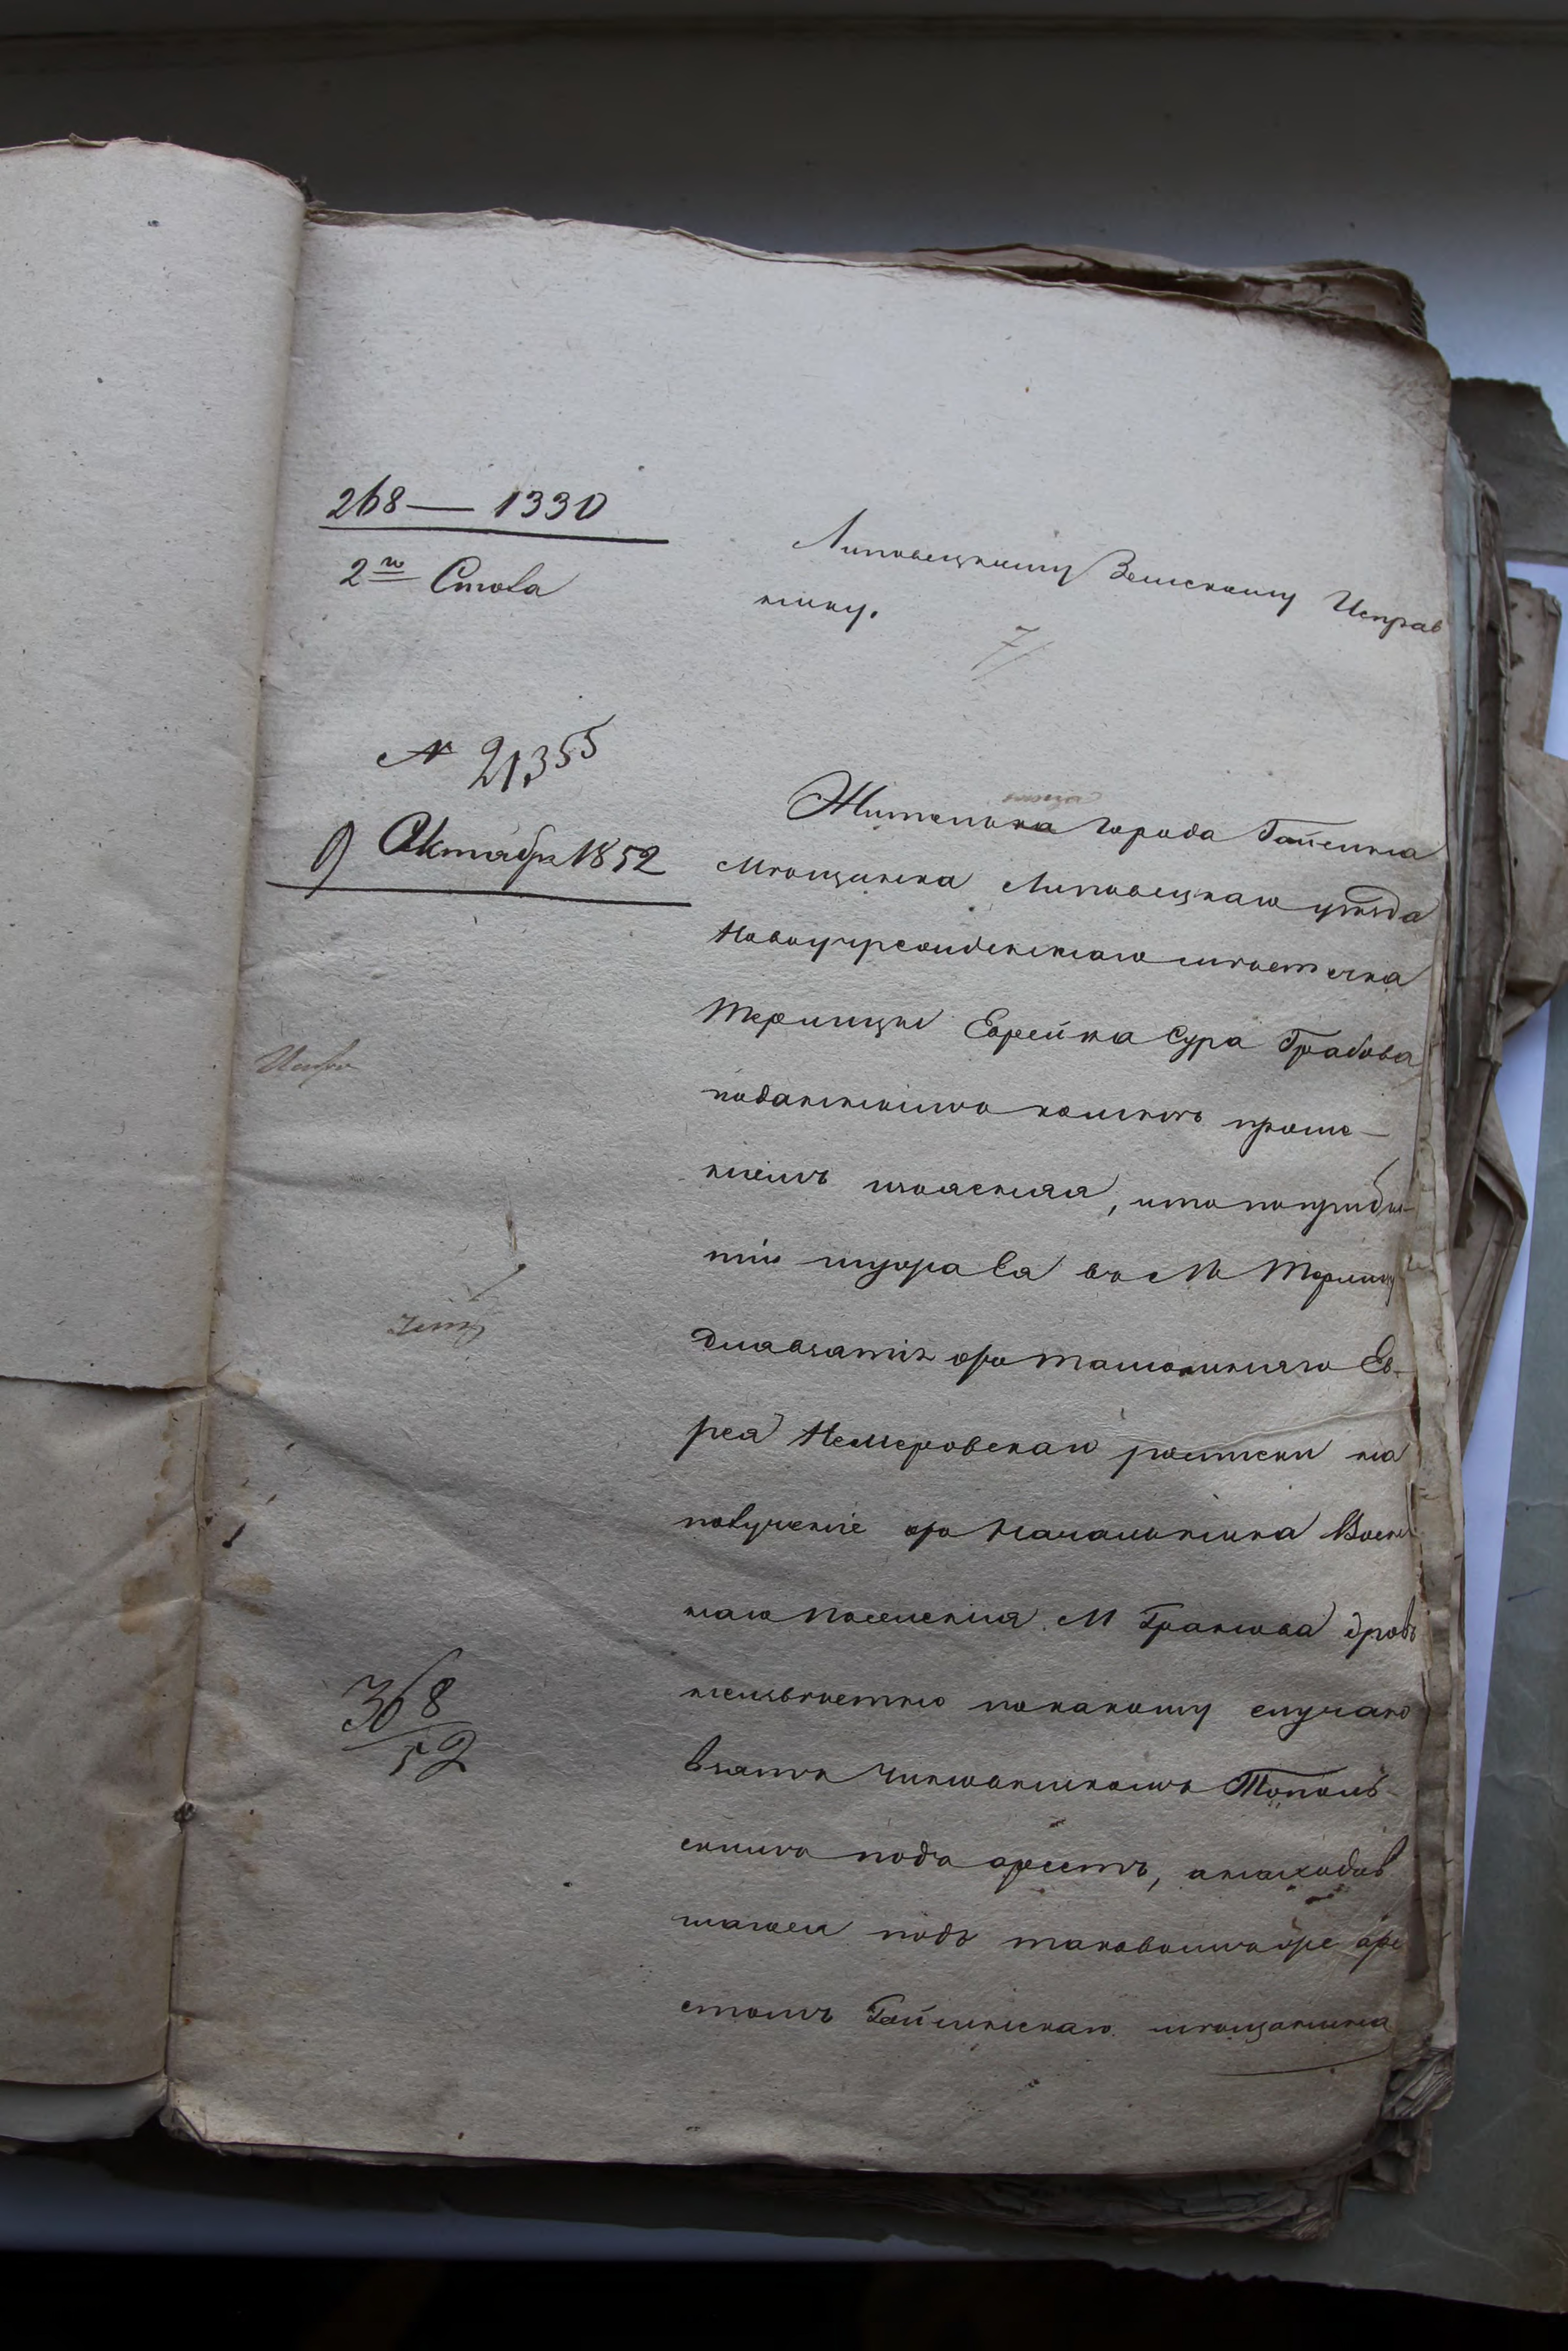 268 — 1330
2го Стола
Липовецкому Земскому Исправ
нику.
7/
№ 21355
9 Октября 1852
Жительница города Гайсина
Мещанка Липовецкаго уѣзда
Новоучрежденнаго мѣстечка
Терлицы Еврейка Сура Грабова
поданнымъ ко мнѣ проше-
ніемъ изъясняя, что по прибы-
тіи мужа ея въ М. Терлицу
для взятія отъ тамошняго Ев-
рея Немеровскаго росписки на
полученіе отъ Начальника Воен
наго поселенія М. Гранова дровъ
неизвѣстно по какому случаю
взятъ Чиновникомъ Тополь-
скимъ подъ арестъ, а находив
шагося подъ таковымъ же аре
стомъ Гайсинскаго мѣщанина
368
52